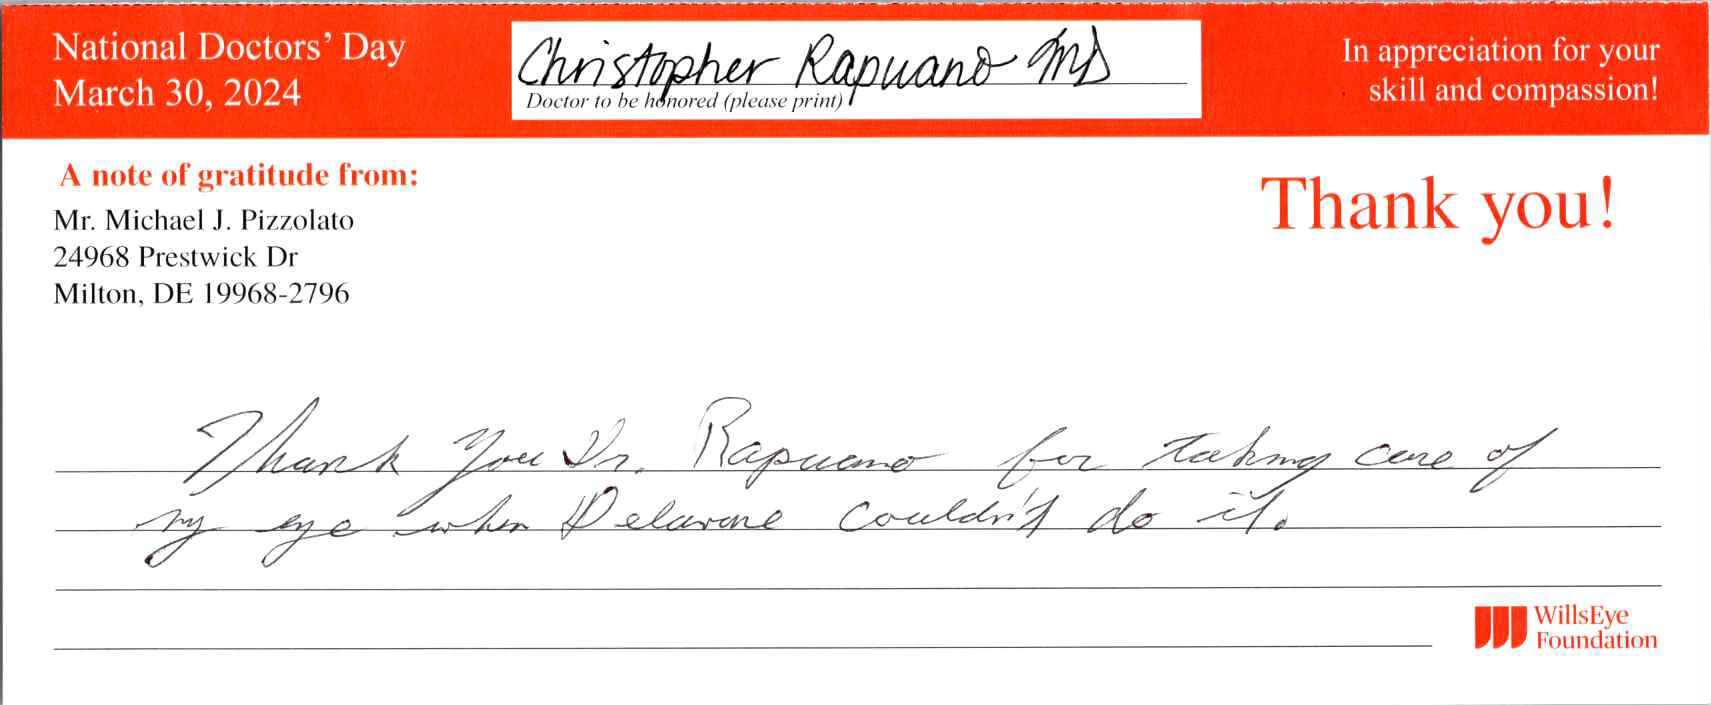 National Doctors' Day
March 30, 2024
Christopher Rapuano MD
Doctor to be honored (please print)
In appreciation for your
skill and compassion!
A note of gratitude from:
Mr. Michael J. Pizzolato
24968 Prestwick Dr
Milton, DE 19968-2796
Thank you!
Thank You Dr. Rapuano for taking care of
my eye when Delaware couldn't do it.
WillsEye
Foundation